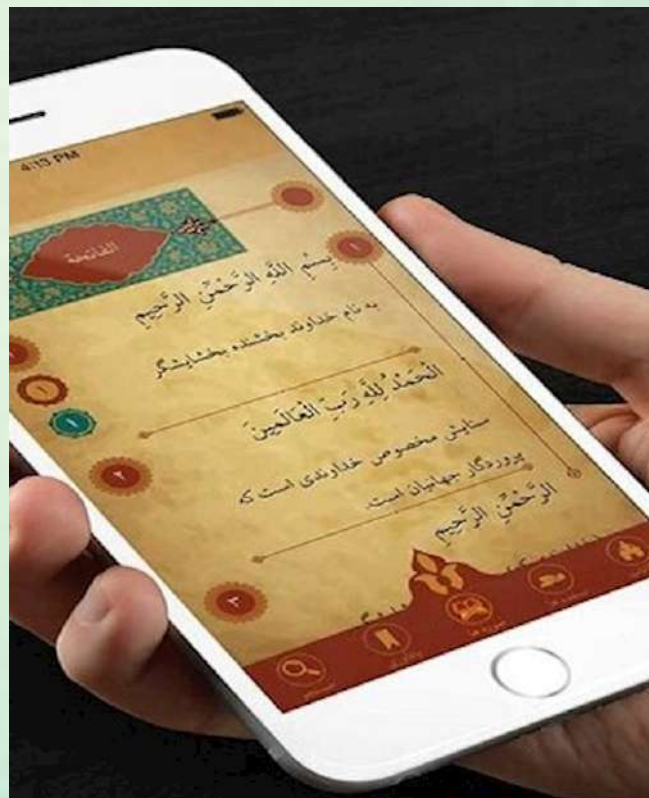 4:13 PM
الفاتحة
١
بِسْمِ اللَّهِ الرَّحْمَٰنِ الرَّحِيمِ
به نام خداوند بخشنده بخشایشگر
١
الْحَمْدُ لِلَّهِ رَبِّ الْعَالَمِينَ
٢
ستایش مخصوص خداوندی است که
پروردگار جهانیان است.
الرَّحْمَٰنِ الرَّحِيمِ
٣
سوره ها